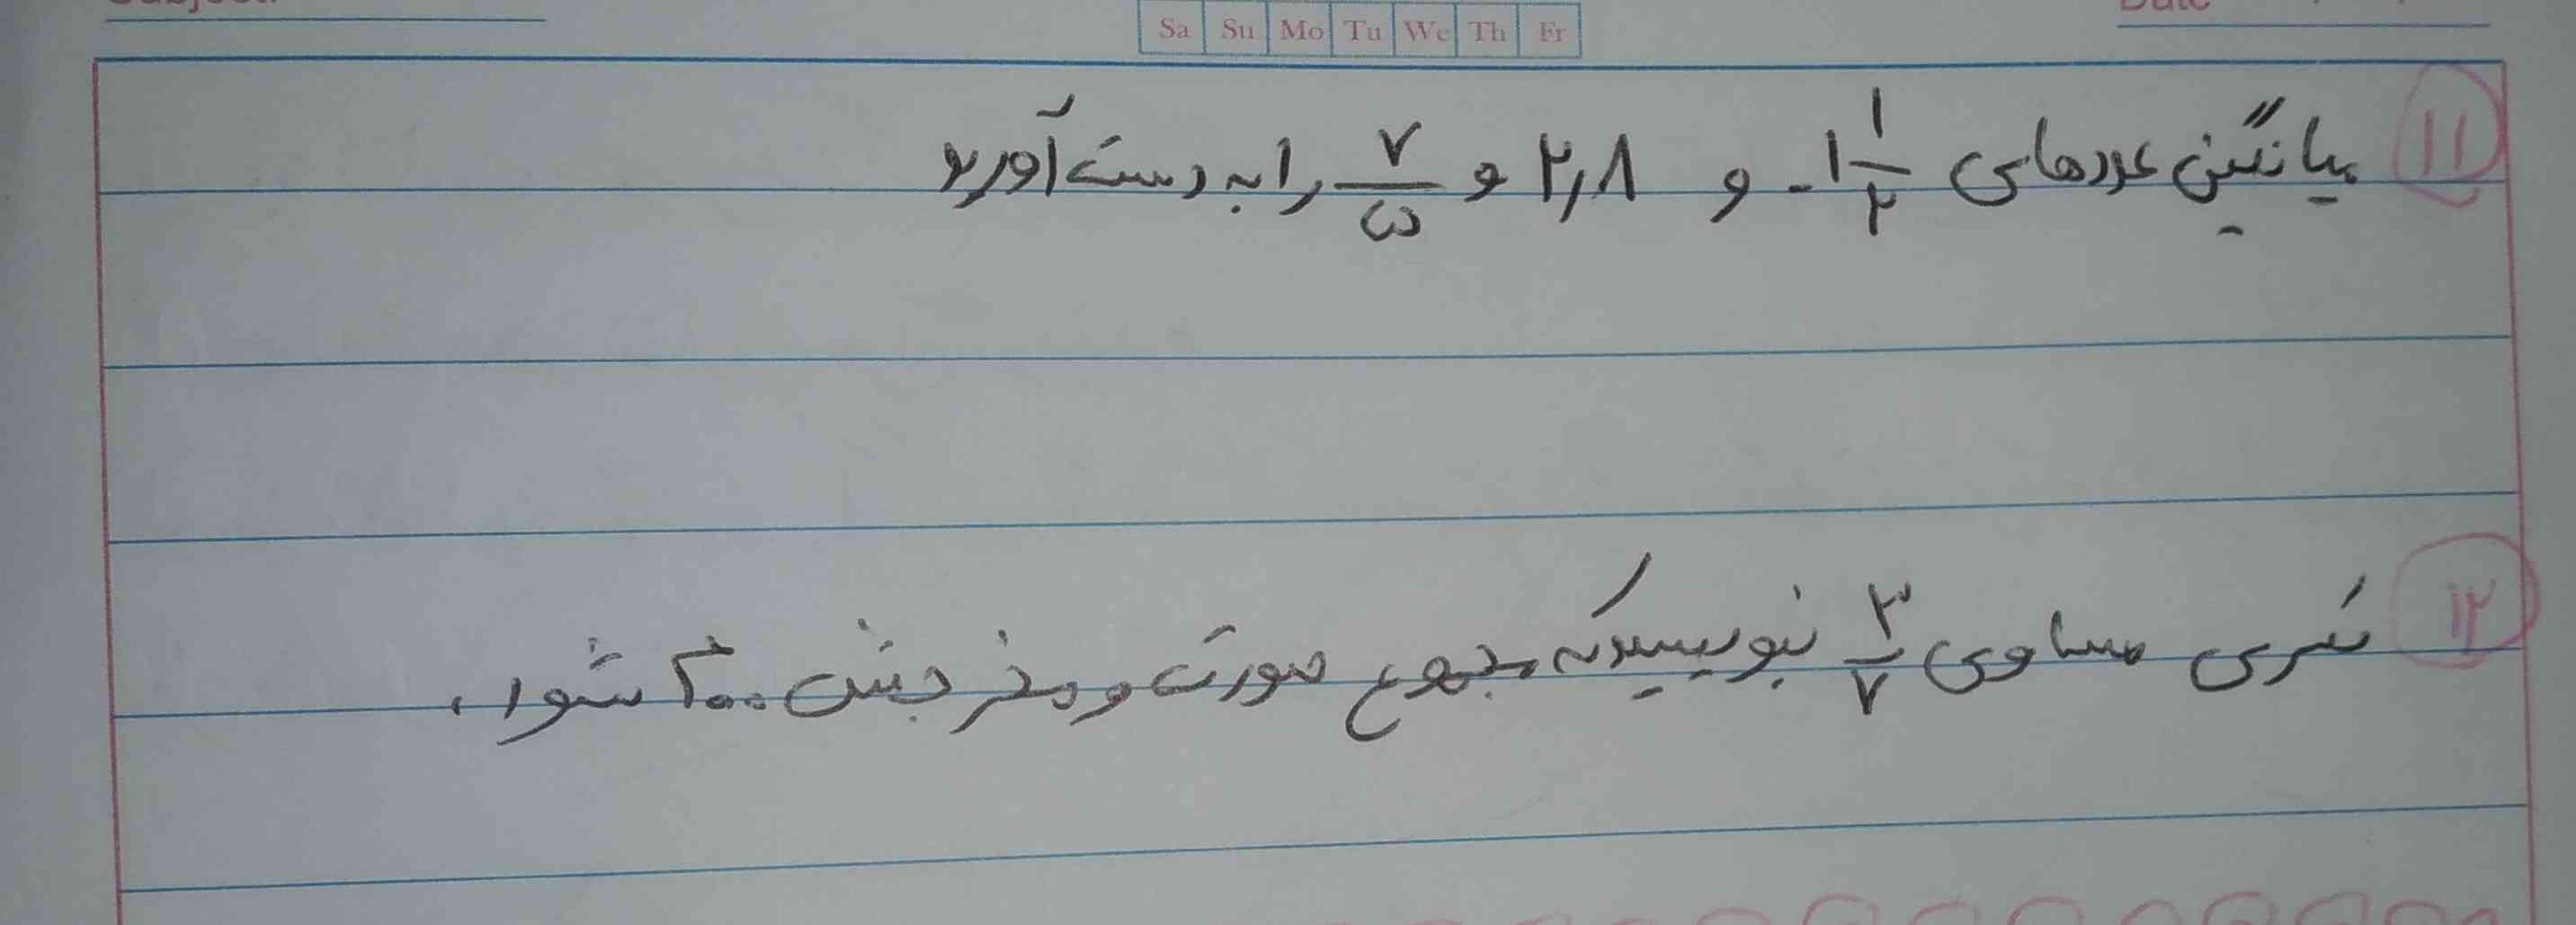 Sa Su Mo Tu We Th Fr
۱۱ میانگین عددهای -۱ ۱/۲ و ۲٫۸ و ۷/۵ را به دست آورید
۱۲ کسری مساوی ۳/۷ بنویسید که مجموع صورت و مخرجش ۲۰۰ شود.